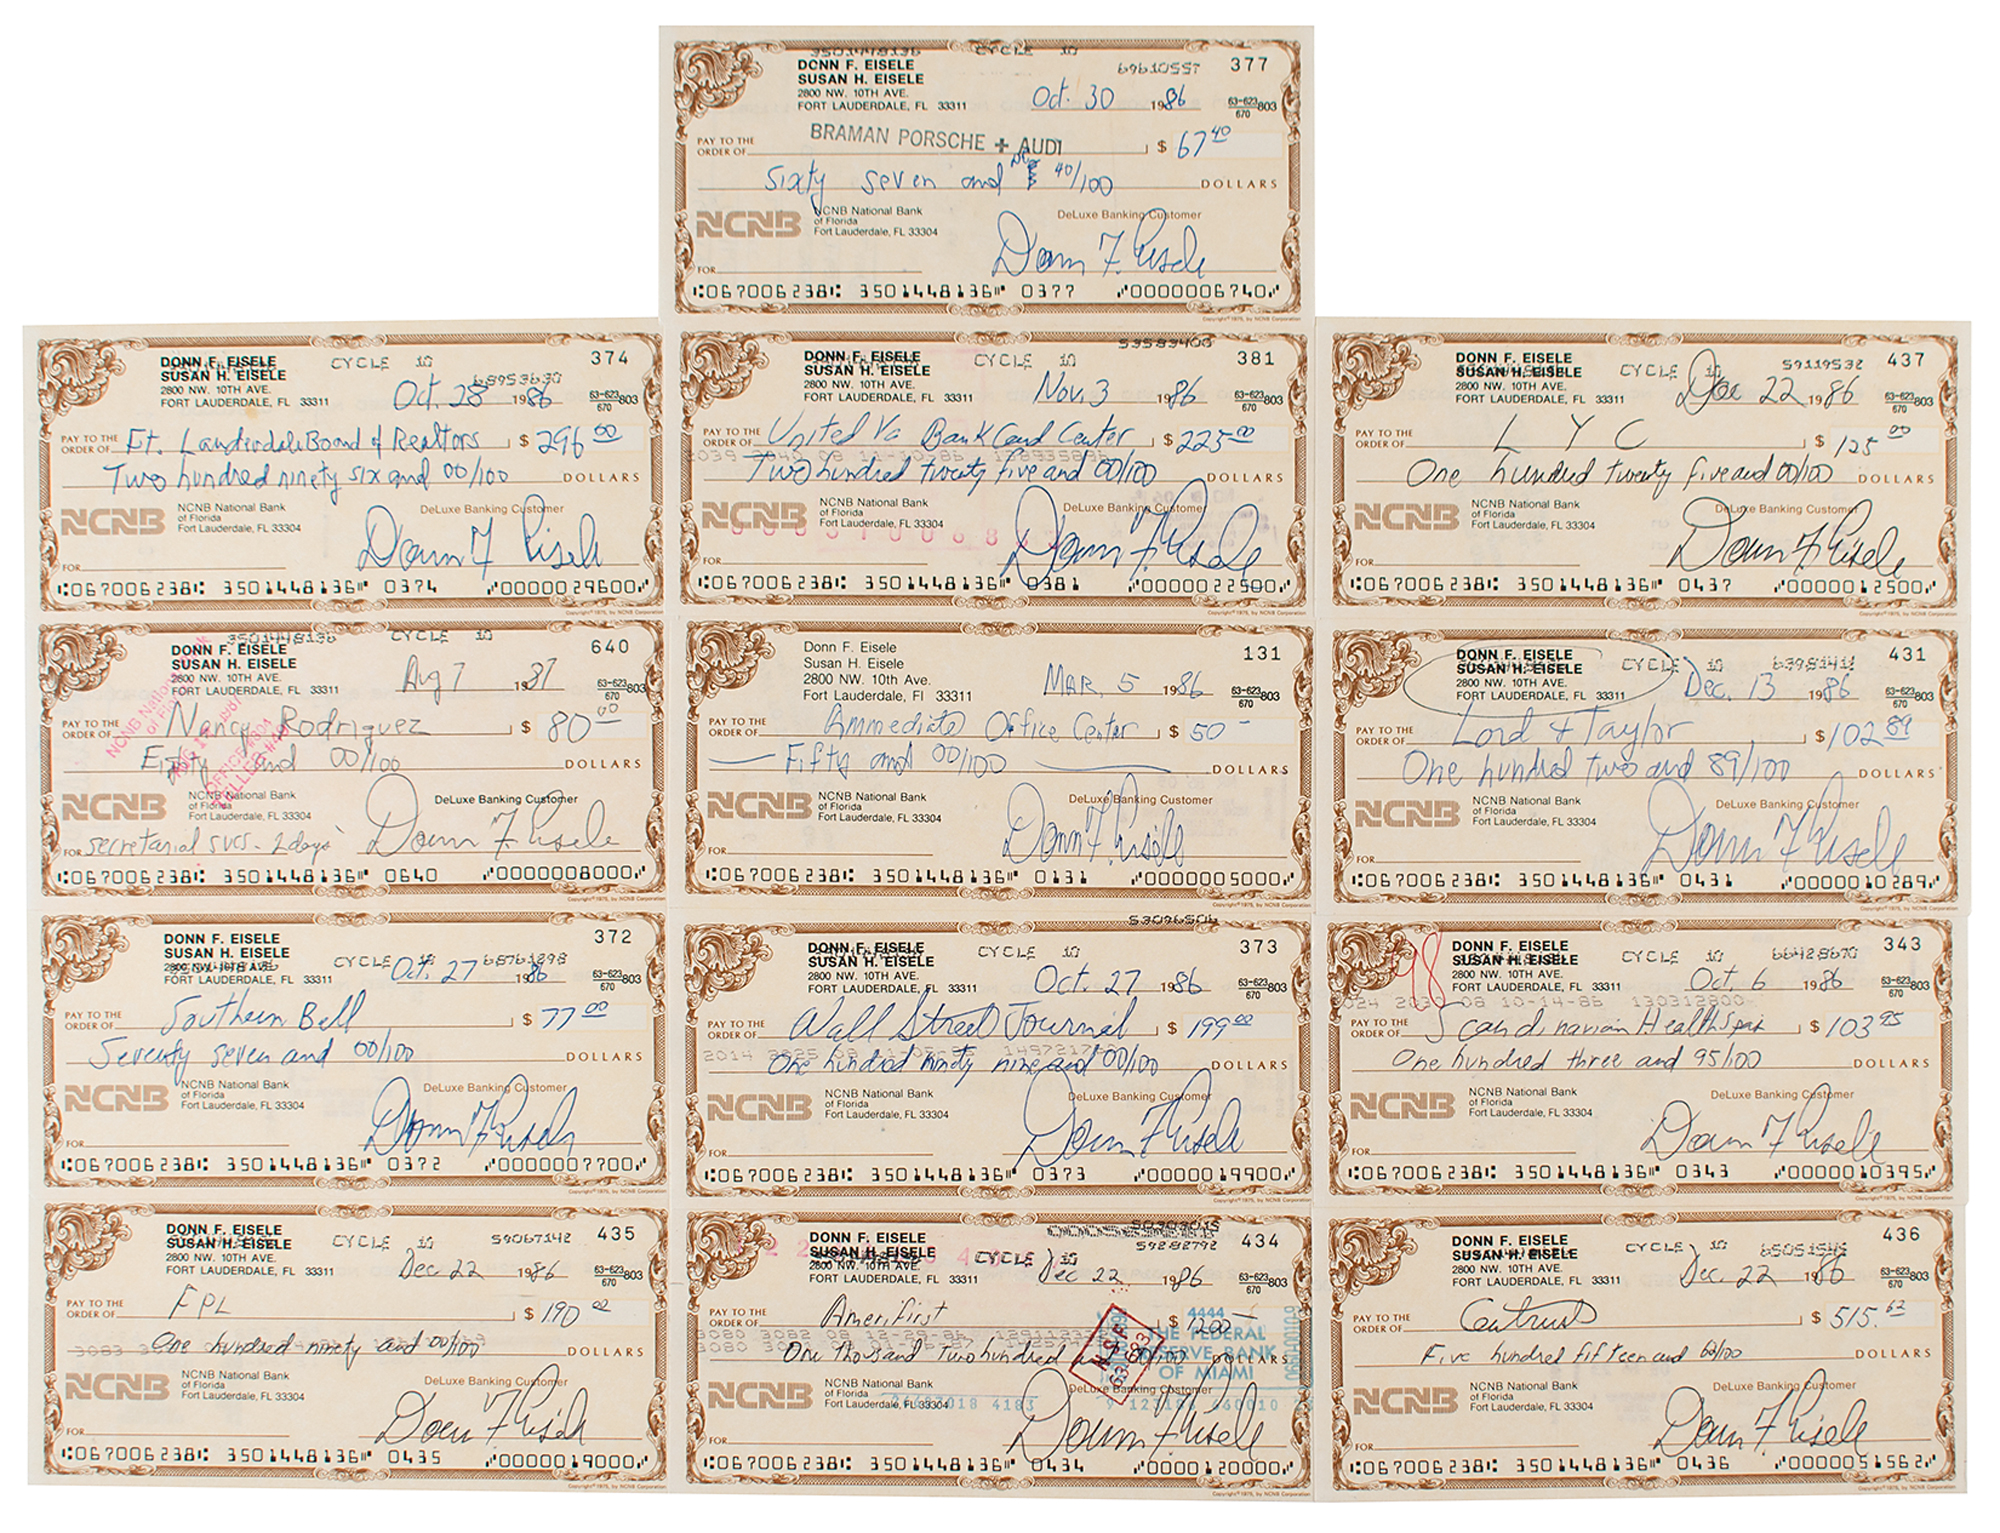 3501448136 CYCLE 10
DONN F. EISELE 69610557 377
SUSAN H. EISELE
2800 NW. 10TH AVE.
FORT LAUDERDALE, FL 33311 Oct. 30 1986 63-623/670 803
PAY TO THE ORDER OF BRAMAN PORSCHE + AUDI $ 67 40
Sixty seven and 40/100 DOLLARS
NCNB NCNB National Bank DeLuxe Banking Customer
of Florida
Fort Lauderdale, FL 33304
FOR Donn F. Eisele
⑆067006238⑆ 3501448136⑈ 0377 ⑈0000006740⑈
Copyright © 1975, by NCNB Corporation
DONN F. EISELE CYCLE 10 374
SUSAN H. EISELE 68953630
2800 NW. 10TH AVE.
FORT LAUDERDALE, FL 33311 Oct. 28 1986 63-623/670 803
PAY TO THE ORDER OF Ft. Lauderdale Board of Realtors $ 296 00
Two hundred ninety six and 00/100 DOLLARS
NCNB NCNB National Bank DeLuxe Banking Customer
of Florida
Fort Lauderdale, FL 33304
FOR Donn F Eisele
⑆067006238⑆ 3501448136⑈ 0374 ⑈0000029600⑈
Copyright © 1975, by NCNB Corporation
53583400
DONN F. EISELE CYCLE 10 381
SUSAN H. EISELE
2800 NW. 10TH AVE.
FORT LAUDERDALE, FL 33311 Nov. 3 1986 63-623/670 803
PAY TO THE ORDER OF United Va Bank Card Center $ 225 00
Two hundred twenty five and 00/100 DOLLARS
NCNB NCNB National Bank DeLuxe Banking Customer
of Florida
Fort Lauderdale, FL 33304
FOR Donn F. Eisele
⑆067006238⑆ 3501448136⑈ 0381 ⑈0000022500⑈
Copyright © 1975, by NCNB Corporation
DONN F. EISELE 59119532 437
SUSAN H. EISELE CYCLE 10
2800 NW. 10TH AVE.
FORT LAUDERDALE, FL 33311 Dec 22 1986 63-623/670 803
PAY TO THE ORDER OF L Y C $ 125 00
One hundred twenty five and 00/100 DOLLARS
NCNB NCNB National Bank DeLuxe Banking Customer
of Florida
Fort Lauderdale, FL 33304
FOR Donn F Eisele
⑆067006238⑆ 3501448136⑈ 0437 ⑈0000012500⑈
Copyright © 1975, by NCNB Corporation
3501448136 CYCLE 10
DONN F. EISELE 640
SUSAN H. EISELE
2800 NW. 10TH AVE.
FORT LAUDERDALE, FL 33311 Aug 7 1987 63-623/670 803
NCNB National Bank of Florida
PAY TO THE ORDER OF Nancy Rodriguez $ 80 00
Eighty and 00/100 DOLLARS
NCNB NCNB National Bank DeLuxe Banking Customer
of Florida
Fort Lauderdale, FL 33304
FOR Secretarial svcs - 2 days Donn F Eisele
⑆067006238⑆ 3501448136⑈ 0640 ⑈0000008000⑈
Copyright © 1975, by NCNB Corporation
Donn F. Eisele 131
Susan H. Eisele
2800 NW. 10th Ave.
Fort Lauderdale, Fl 33311 MAR. 5 1986 63-623/670 803
PAY TO THE ORDER OF Ammediate Office Center $ 50 -
Fifty and 00/100 DOLLARS
NCNB NCNB National Bank DeLuxe Banking Customer
of Florida
Fort Lauderdale, FL 33304
FOR Donn F. Eisele
⑆067006238⑆ 3501448136⑈ 0131 ⑈0000005000⑈
Copyright © 1975, by NCNB Corporation
DONN F. EISELE CYCLE 10 63981411 431
SUSAN H. EISELE
2800 NW. 10TH AVE.
FORT LAUDERDALE, FL 33311 Dec. 13 1986 63-623/670 803
PAY TO THE ORDER OF Lord & Taylor $ 102 89
One hundred two and 89/100 DOLLARS
NCNB NCNB National Bank DeLuxe Banking Customer
of Florida
Fort Lauderdale, FL 33304
FOR Donn F Eisele
⑆067006238⑆ 3501448136⑈ 0431 ⑈0000010289⑈
Copyright © 1975, by NCNB Corporation
DONN F. EISELE 372
SUSAN H. EISELE CYCLE 10 68761298
2800 NW. 10TH AVE.
FORT LAUDERDALE, FL 33311 Oct. 27 1986 63-623/670 803
PAY TO THE ORDER OF Southern Bell $ 77 00
Seventy seven and 00/100 DOLLARS
NCNB NCNB National Bank DeLuxe Banking Customer
of Florida
Fort Lauderdale, FL 33304
FOR Donn F Eisele
⑆067006238⑆ 3501448136⑈ 0372 ⑈0000007700⑈
Copyright © 1975, by NCNB Corporation
53096506
DONN F. EISELE CYCLE 10 373
SUSAN H. EISELE
2800 NW. 10TH AVE.
FORT LAUDERDALE, FL 33311 Oct. 27 1986 63-623/670 803
PAY TO THE ORDER OF Wall Street Journal $ 199 00
One hundred ninety nine and 00/100 DOLLARS
NCNB NCNB National Bank DeLuxe Banking Customer
of Florida
Fort Lauderdale, FL 33304
FOR Donn F Eisele
⑆067006238⑆ 3501448136⑈ 0373 ⑈0000019900⑈
Copyright © 1975, by NCNB Corporation
98
DONN F. EISELE CYCLE 10 66428670 343
SUSAN H. EISELE
2800 NW. 10TH AVE.
FORT LAUDERDALE, FL 33311 Oct. 6 1986 63-623/670 803
024 2030 08 10-14-86 130312800
PAY TO THE ORDER OF Scandinavian Health Spa $ 103 95
One hundred three and 95/100 DOLLARS
NCNB NCNB National Bank DeLuxe Banking Customer
of Florida
Fort Lauderdale, FL 33304
FOR Donn F Eisele
⑆067006238⑆ 3501448136⑈ 0343 ⑈0000010395⑈
Copyright © 1975, by NCNB Corporation
DONN F. EISELE 59067142 435
SUSAN H. EISELE CYCLE 10
2800 NW. 10TH AVE.
FORT LAUDERDALE, FL 33311 Dec 22 1986 63-623/670 803
PAY TO THE ORDER OF FPL $ 190 00
One hundred ninety and 00/100 DOLLARS
NCNB NCNB National Bank DeLuxe Banking Customer
of Florida
Fort Lauderdale, FL 33304
FOR Donn F Eisele
⑆067006238⑆ 3501448136⑈ 0435 ⑈0000019000⑈
Copyright © 1975, by NCNB Corporation
DONN F. EISELE 59282792 434
SUSAN H. EISELE CYCLE 10
2800 NW. 10TH AVE.
FORT LAUDERDALE, FL 33311 Dec 22 1986 63-623/670 803
PAY TO THE ORDER OF Amerifirst $ 1200 -
One thousand two hundred and 00/100 DOLLARS
N.S.F.
4444
THE FEDERAL
RESERVE BANK
OF MIAMI
NCNB NCNB National Bank DeLuxe Banking Customer
of Florida
Fort Lauderdale, FL 33304
FOR Donn F Eisele
⑆067006238⑆ 3501448136⑈ 0434 ⑈0000120000⑈
Copyright © 1975, by NCNB Corporation
DONN F. EISELE 436
SUSAN H. EISELE CYCLE 10
2800 NW. 10TH AVE.
FORT LAUDERDALE, FL 33311 Dec. 22 1986 63-623/670 803
PAY TO THE ORDER OF Centrust $ 515.62
Five hundred fifteen and 62/100 DOLLARS
NCNB NCNB National Bank DeLuxe Banking Customer
of Florida
Fort Lauderdale, FL 33304
FOR Donn F. Eisele
⑆067006238⑆ 3501448136⑈ 0436 ⑈0000051562⑈
Copyright © 1975, by NCNB Corporation